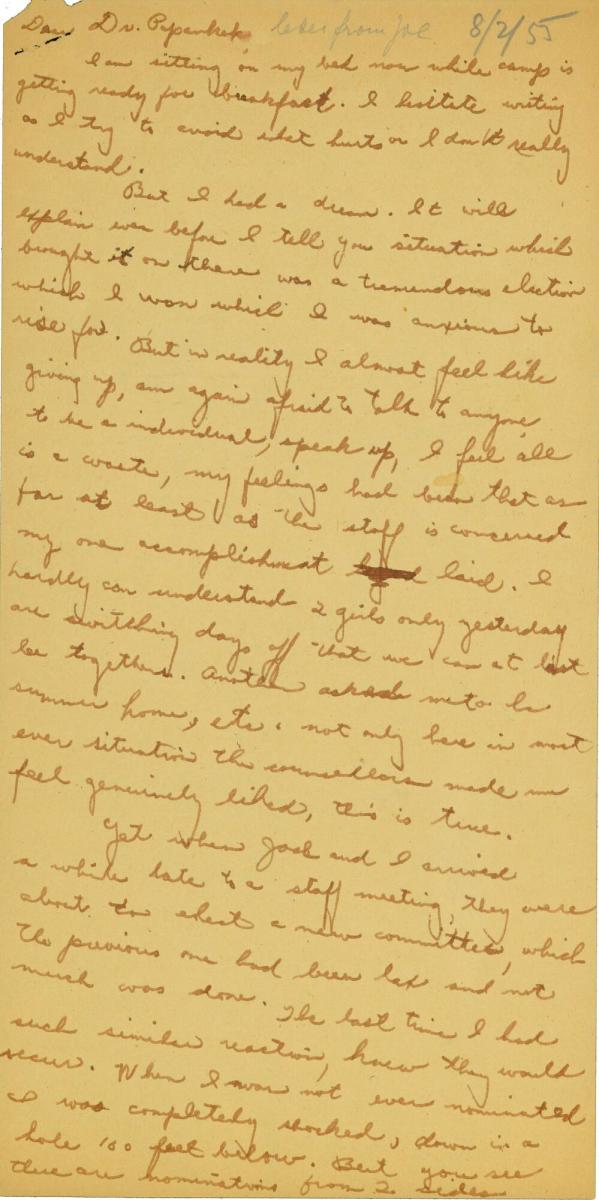 Dear Dr. Papanek, letter from Joe 8/2/55
I am sitting on my bed now while camp is
getting ready for breakfast. I hesitate writing
as I try to avoid what hurts or I don't really
understand.
But I had a dream. It will
explain even before I tell you situation which
brought it on there was a tremendous election
which I won which I was anxious to
rise for. But in reality I almost feel like
giving up, am again afraid to talk to anyone,
to be a individual, speak up, I feel all
is a waste, my feelings had been that as
far at least as the staff is concerned
my one accomplishment laid. I
hardly can understand 2 girls only yesterday
are switching days off that we can at last
be together. Another asked me to la
summer home, etc. not only here in most
ever situation the counsellors made me
feel genuinely liked, this is true.
Yet when Jack and I arrived
a while late to a staff meeting, they were
about to elect a new committee, which
the previous one had been lax and not
much was done. The last time I had
such similar reaction, knew they would
occur. When I was not even nominated
I was completely shocked, down in a
hole 100 feet below. But you see
there are nominations from 2 sides